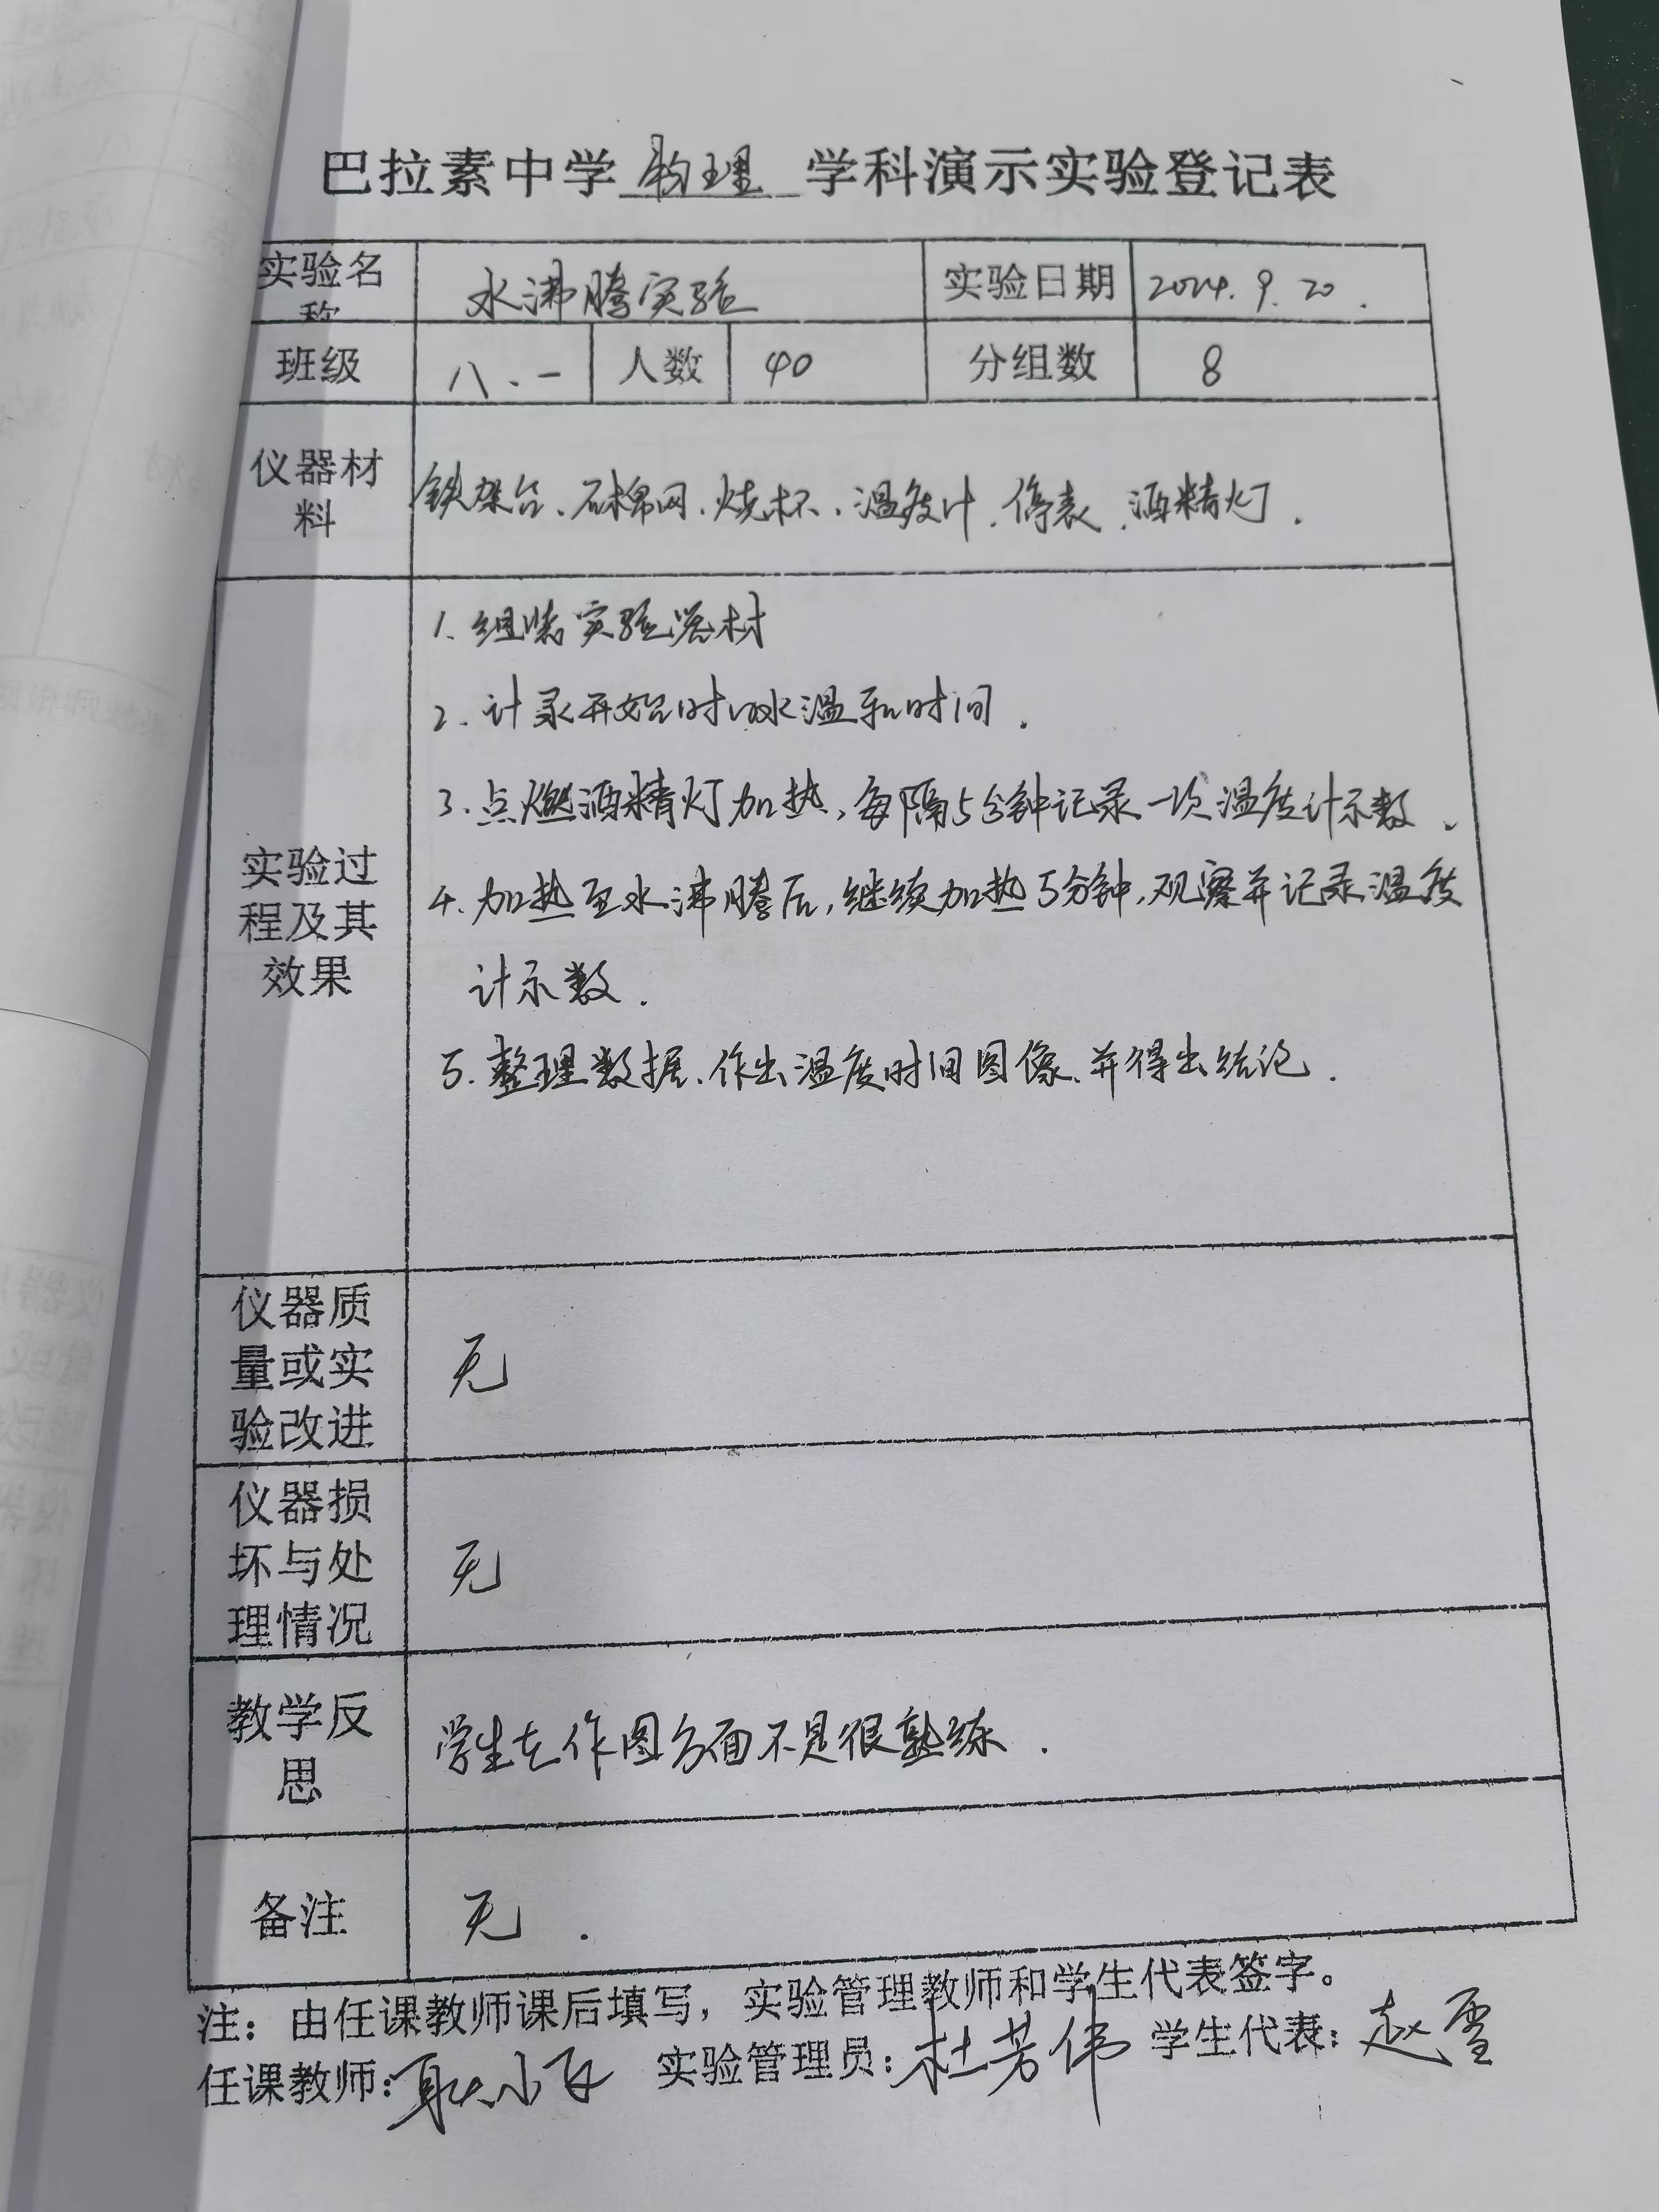 巴拉素中学 物理 学科演示实验登记表
实验名称 水沸腾实验 实验日期 2024.9.20.
班级 八、一 人数 40 分组数 8
仪器材料 铁架台、石棉网、烧杯、温度计、停表、酒精灯.
实验过程及其效果
1. 组装实验器材
2. 计录开始时的水温和时间.
3. 点燃酒精灯加热,每隔5分钟记录一次温度计示数、
4. 加热至水沸腾后,继续加热5分钟,观察并记录温度
计示数.
5. 整理数据、作出温度时间图像、并得出结论.
仪器质量或实验改进 无
仪器损坏与处理情况 无
教学反思 学生在作图方面不是很熟练.
备注 无.
注：由任课教师课后填写，实验管理教师和学生代表签字。
任课教师:耿小 实验管理员:杜芳伟 学生代表:赵雪